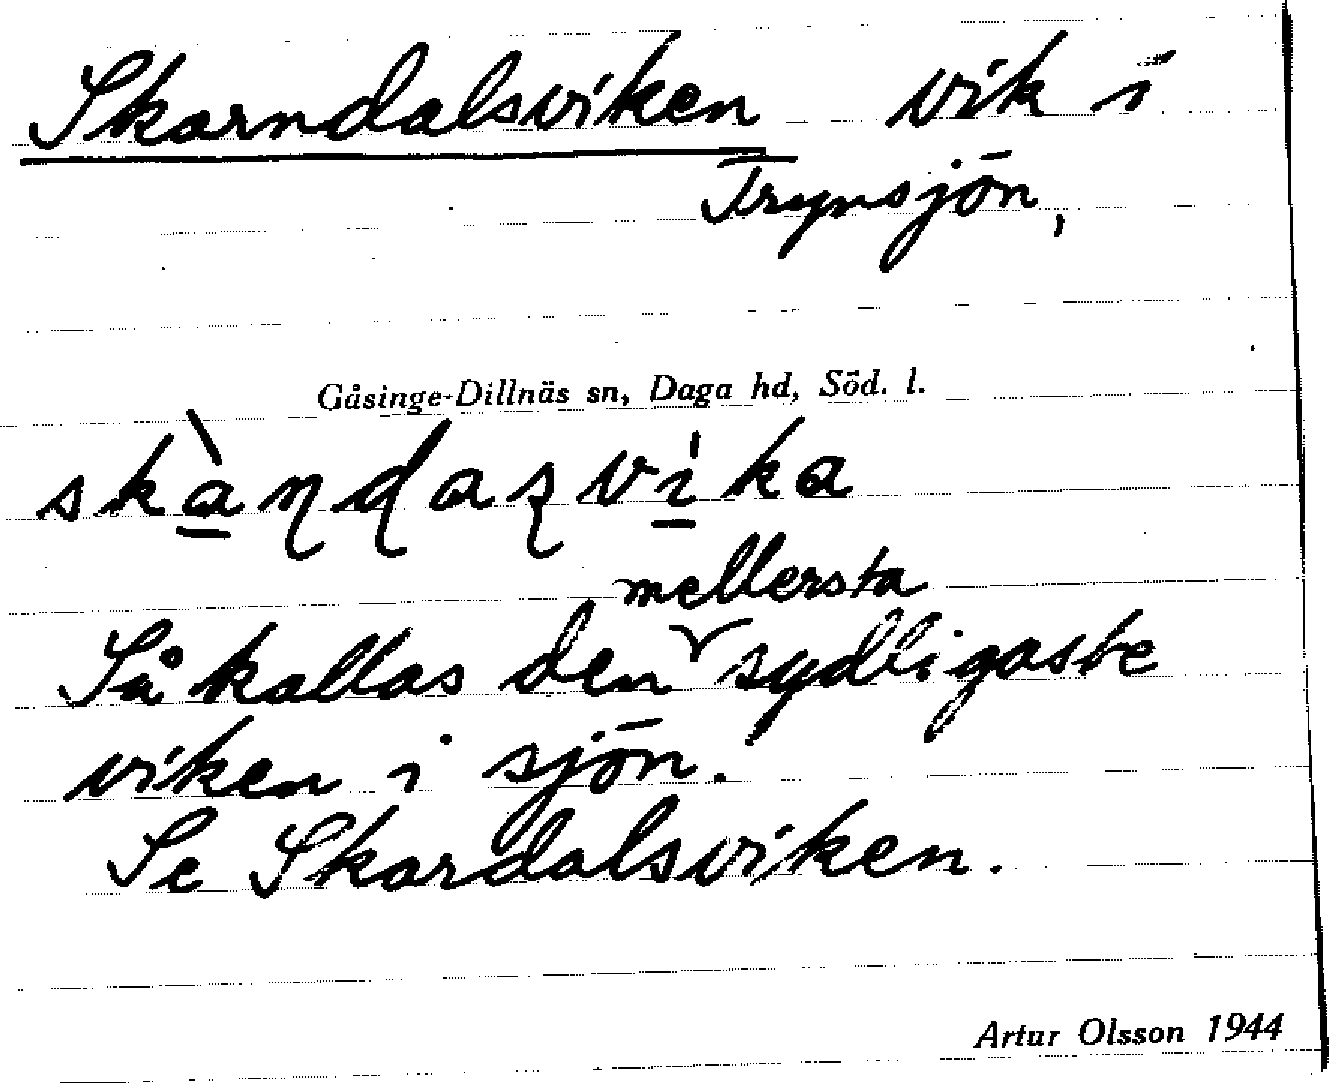 Skarndalsviken vik i
Trynsjön,
Gåsinge-Dillnäs sn, Daga hd, Söd. l.
skàɳɖaʂvíka
mellersta
Så kallas den sydligaste
viken i sjön.
Se Skardalsviken.
Artur Olsson 1944